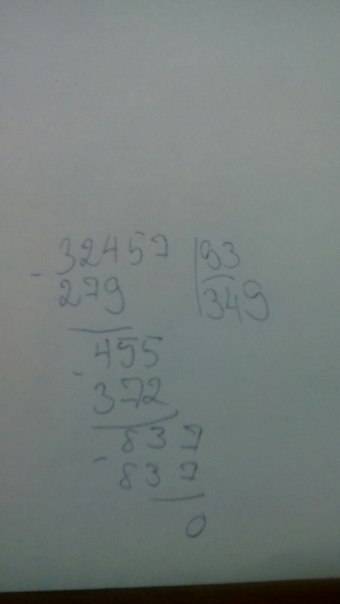 - 32457 | 93
279 | 349
- 455
372
- 837
837
0